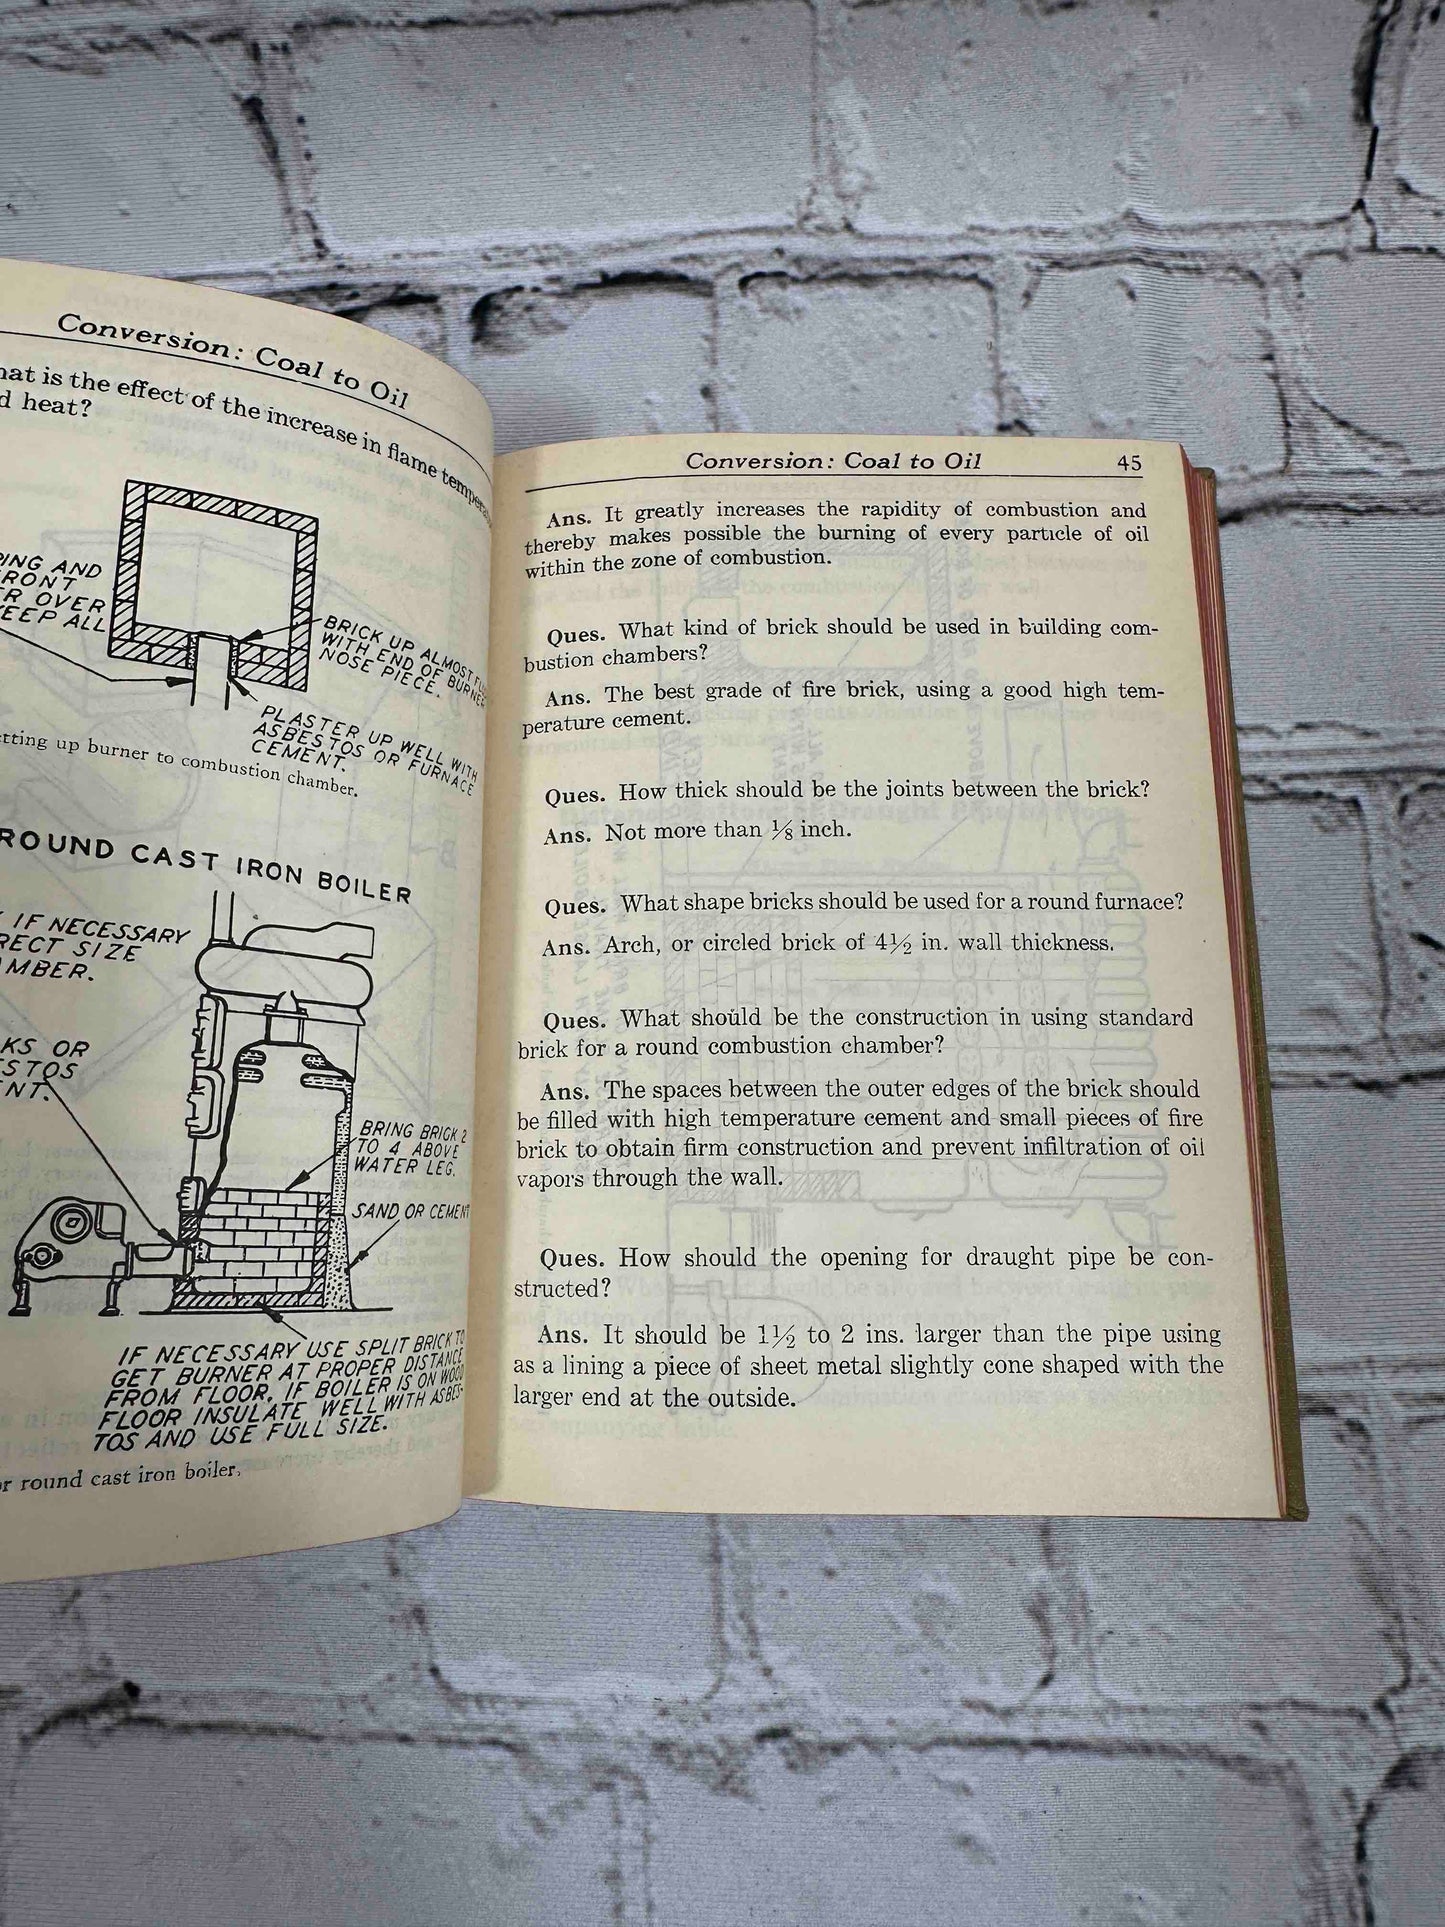 Conversion: Coal to Oil
hat is the effect of the increase in flame
d heat?
PING AND
RONT
R OVER
KEEP ALL
BRICK UP ALMOST
WITH END OF BURNER
NOSE PIECE.
PLASTER UP WELL WITH
ASBESTOS OR FURNACE
CEMENT.
tting up burner to combustion chamber.
ROUND CAST IRON BOILER
IF NECESSARY
RECT SIZE
AMBER.
KS OR
ESTOS
ENT.
BRING BRICK 2
TO 4 ABOVE
WATER LEG.
SAND OR CEMENT
IF NECESSARY USE SPLIT BRICK TO
GET BURNER AT PROPER DISTANCE
FROM FLOOR. IF BOILER IS ON WOOD
FLOOR INSULATE WELL WITH ASBES-
TOS AND USE FULL SIZE.
or round cast iron boiler.
Conversion: Coal to Oil 45
Ans. It greatly increases the rapidity of combustion and
thereby makes possible the burning of every particle of oil
within the zone of combustion.
Ques. What kind of brick should be used in building com-
bustion chambers?
Ans. The best grade of fire brick, using a good high tem-
perature cement.
Ques. How thick should be the joints between the brick?
Ans. Not more than ⅛ inch.
Ques. What shape bricks should be used for a round furnace?
Ans. Arch, or circled brick of 4½ in. wall thickness.
Ques. What should be the construction in using standard
brick for a round combustion chamber?
Ans. The spaces between the outer edges of the brick should
be filled with high temperature cement and small pieces of fire
brick to obtain firm construction and prevent infiltration of oil
vapors through the wall.
Ques. How should the opening for draught pipe be con-
structed?
Ans. It should be 1½ to 2 ins. larger than the pipe using
as a lining a piece of sheet metal slightly cone shaped with the
larger end at the outside.